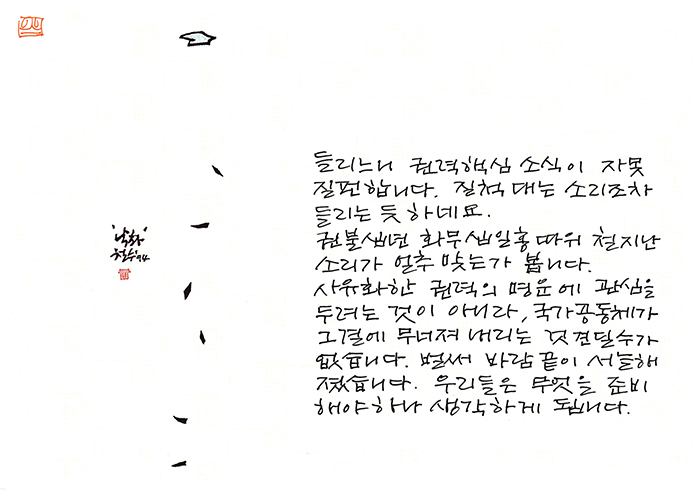 '낙화'
들리느니 권력핵심 소식이 자못
질펀합니다. 질척 대는 소리조차
들리는 듯 하네요.
권불십년 화무십일홍 따위 철지난
소리가 얼추 맞는가 봅니다.
사유화한 권력의 명운에 관심을
두려는 것이 아니라, 국가공동체가
그결에 무너져 내리는 것 견딜수가
없습니다. 벌써 바람끝이 서늘해
졌습니다. 우리들은 무엇을 준비
해야하나 생각하게 됩니다.